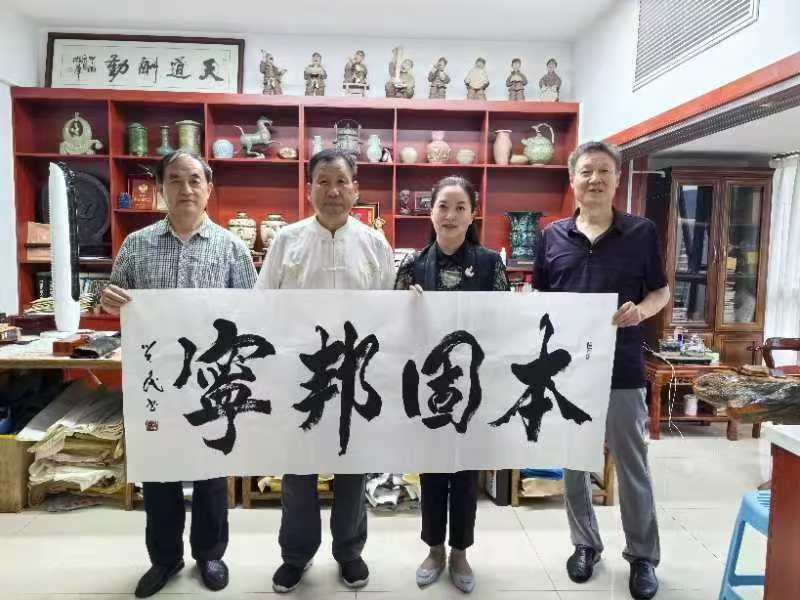 天道酬勤
本固邦寧